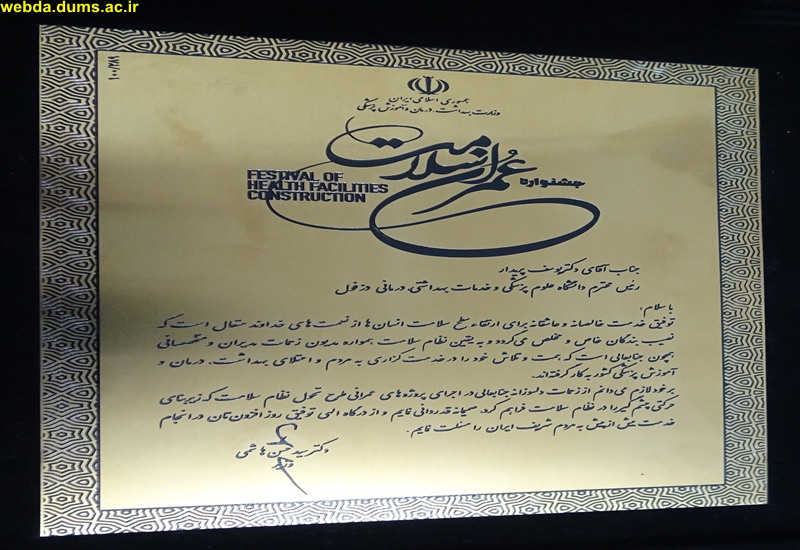 webda.dums.ac.ir
۱۰۰/۳۸۸
جمهوری اسلامی ایران
وزارت بهداشت، درمان و آموزش پزشکی
جشنواره
عمران سلامت
FESTIVAL OF
HEALTH FACILITIES
CONSTRUCTION
جناب آقای دکتر یوسف پریدار
رئیس محترم دانشگاه علوم پزشکی و خدمات بهداشتی درمانی دزفول
با سلام؛
توفیق خدمت خالصانه و عاشقانه برای ارتقاء سطح سلامت انسان ها از نعمت های خداوند متعال است که
نصیب بندگان خاص و مخلص می گردد و به یقین نظام سلامت همواره مدیون زحمات مدیران و متخصصانی
همچون جنابعالی است که همت و تلاش خود را در خدمت گزاری به مردم و اعتلای بهداشت، درمان و
آموزش پزشکی کشور به کار گرفته‌اند.
بر خود لازم می دانم از زحمات دلسوزانه جنابعالی در اجرای پروژه های عمرانی طرح تحول نظام سلامت که زیربنای
حرکتی چشم گیر را در نظام سلامت فراهم کرد، صمیمانه قدردانی نمایم و از درگاه الهی توفیق روز افزون تان در انجام
خدمت بیش از پیش به مردم شریف ایران را مسئلت نمایم.
دکتر سید حسن هاشمی
وزیر